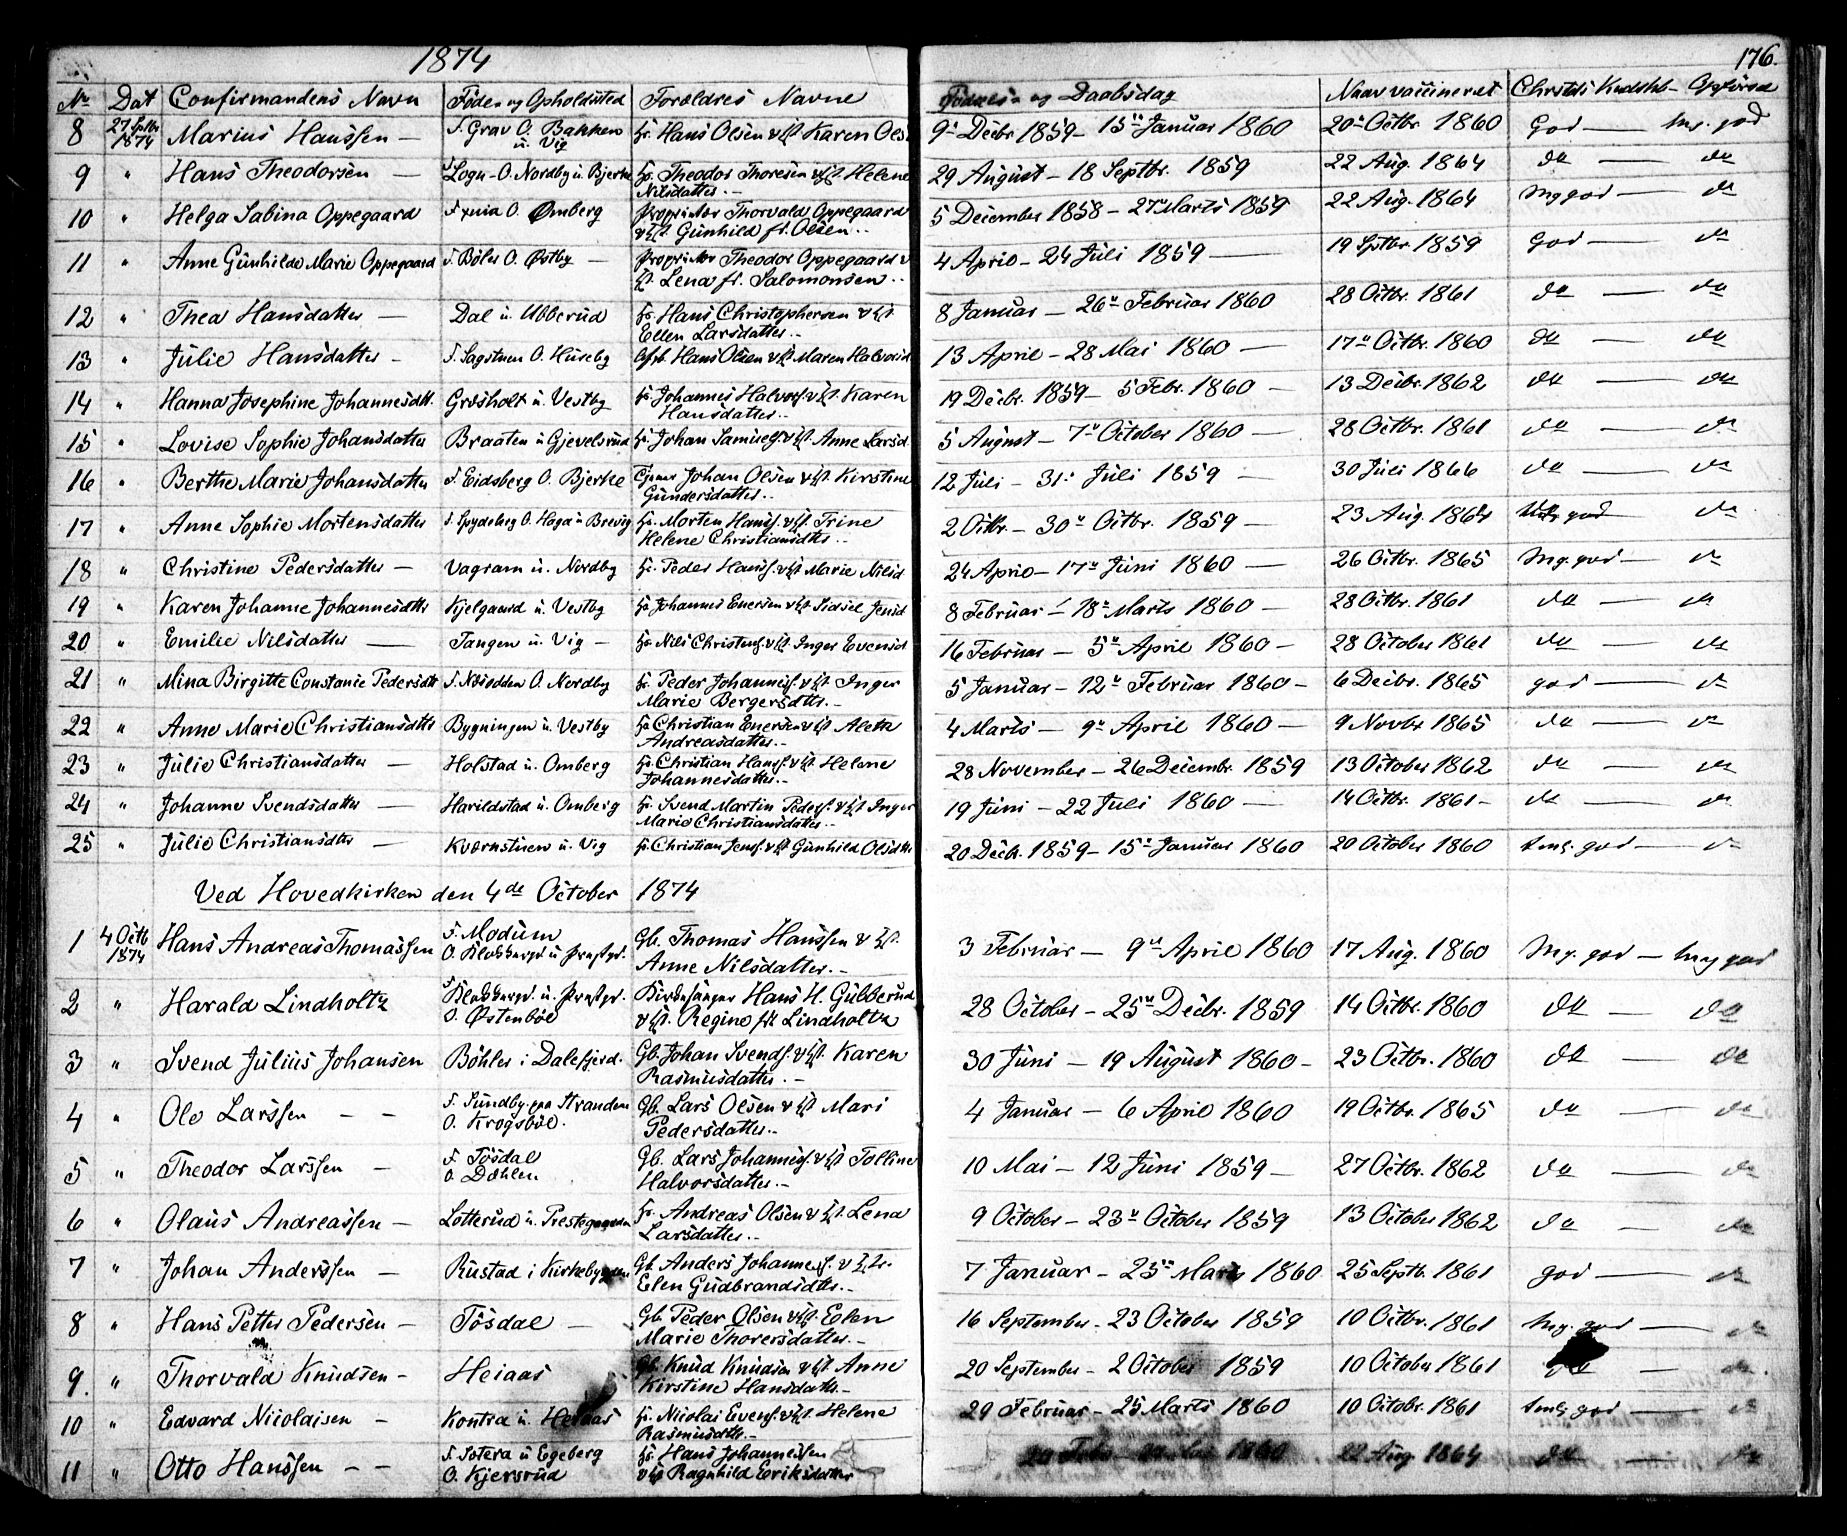 1874
176.
No Dat Confirmandens Navn Föde- og Opholdsted Forældres Navne Födsels- og Daabsdag Naar vaccineret Christds Kundskb- Opförsel
8 27 Sptbr 1874 Marius Hanssen — F. Grav O. Bakken u. Vig Hr. Hans Olsen v Karen Ols 9de Decbr 1859 – 15de Januar 1860 20de Octbr 1860 God — mg. god
9 " Hans Theodorsen — Logn - O. Nordby u Bjerke Theodor Thoresen Helene Nilsdatter. – 29 August – 18 Septbr. 1859 22 Aug. 1864 do — do
10 " Helga Sabina Oppegaard O. Omberg Proprietær Thorvald Oppegaard Gunhild f. Olsen.. 5 December 1858 – 27de Marts 1859 22 Aug. 1864 mg god — do
11 " Anne Gunhilde Marie Oppegaard F. Böler O. Østby — Proprietær Theodor Oppegaard v Lena f. Salomonsen.. 4 April – 24 Juli 1859 — 19 Sptbr 1859 God — do
12 " Thea Hansdatter — Dal u. Ubberud Hans Christophersen Ellen Larsdatter.– 8 Januar — 26de Februar 1860 28 Octbr. 1861 do — do
13 " Julie Hansdatter – F. Sagstuen O. Huseby Hans Olsen Maren Halvorsd 13 April – 28 Mai 1860 — 17de Octbr. 1860 do — do
14 " Hanna Josephine Johannesdtt. Græsholt u. Vestby Johannes Halvors. Karen Hansdatter.– 19 Decbr. 1859 – 5 Febr. 1860 — 13 Decbr. 1862 do — do
15 " Lovise Sophie Johansdatter Braaten u Gjevelsrud Johan Samuels. Anne Larsd. 5 August – 7de October 1860 — 28 Octbr. 1861 do — do
16 " Berthe Marie Johansdatter F. Eidsberg O. Bjerke Johan Olsen Kirstine Gundersdatter.. 12 Juli – 31. Juli 1859 — 30 Juli 1866 do — do
17 " Anne Sophie Mortensdatter F. Spydeberg O. Haga u Brevig Morten Hans. Trine Helene Christiansdtr.– 2 Octbr. – 30de Octbr. 1859 – 23 Aug. 1864 god — do
18 " Christine Pedersdatter — Vagram u. Nordby Peder Hans. Marie Nilsd 24 April – 17de Juni 1860 — 26 Octbr. 1865 mg. god — do
19 " Karen Johanne Johannesdtr Kjelgaard u. Vestby Johannes Enersen Sidsel Jensd 8 Februar – 18de Marts 1860 — 28 Octbr. 1861 do — do
20 " Emilie Nilsdatter — Tangen u. Vig – Nils Christens. Inger Evensd 16 Februar – 5de April 1860 – 28 October 1861 do — do
21 " Mina Birgitte Constance Pedersdtr F. Næsodden O. Nordby Peder Johannes. Inger Marie Bergersdtr.– 5 Januar – 12de Februar 1860 – 6 Decbr. 1865 god — do
22 " Anne Marie Christiansdtr Bygningen u. Vestby Christian Enersen Alethe Andreasdatter.– 4 Marts — 9de April 1860 — 9 Novbr 1865 do — do
23 " Julie Christiansdatter — Holstad u. Omberg Christian Hans. Helene Johannesdatter.– 28 November – 26 Decembr. 1859 13 October 1862 do — do
24 " Johanne Svendsdatter — Harildstad u. Omberg Svend Martin Peders. Inger Marie Christiansdatter.. 19 Juni – 22 Juli 1860 — 14 Octbr. 1861 – do — do
25 " Julie Christiansdtr — Kværnstuen u. Vig Christian Jens. Gunhild Olsdtr 20 Decbr. 1859 – 15de Januar 1860 20 October 1860 temlg. god — do
Ved Hovedkirken den 4de October 1874
1 4 Octb 1874 Hans Andreas Thomassen F. Modum O. Klokkergd u Præstgd. Gb. Thomas Hanssen Anne Nilsdatter.– 3 Februar — 9de April 1860 17 Aug. 1860 mg. god — mg god
2 " Harald Lindholtz F Klokkergd. u. Præstgd. O. Østenböl Kirkesanger Hans H. Gubberud Regine f. Lindholtz 28 October – 25de Decbr. 1859 14 Octbr. 1860 do — do
3 " Svend Julius Johansen Böhler i Dalefjerd. Gb. Johan Svends. Karen Rasmusdatter.– 30 Juni – 19 August 1860 – 23 Octbr. 1860 do — do
4 " Ole Larssen – – F. Sundby paa Stranden O. Krogsböl. Gb. Lars Olsen Mari Pedersdatter.– 4 Januar – 6 April 1860 19 Octbr. 1865 do — do
5 " Theodor Larssen – F Tösdal O Dæhlen Gb. Lars Johannes. Tolline Halvorsdatter.– 10 Mai – 12 Juni 1859 – 27 Octbr. 1862 do — do
6 " Olaus Andreassen – Lötterud u. Prestegaarden Andreas Olsen Lena Larsdatter.– 9 October – 23de October 1859 13 October 1862 do — do
7 " Johan Anderssen – Rustad i Kirkebygden Gb. Anders Johannes. Elen Gudbrandsdtr.– 7 Januar – 25de Marts 1860 25 Septb. 1861 god — do
8 " Hans Petter Pedersen – Tösdal – Gb. Peder Olsen Elen Marie Thorersdatter.– 16 September – 23 October 1859 10 Octbr. 1861 mg. god — do
9. " Thorvald Knudsen – Heiaas Gb. Knud Knudsen Anne Kirstine Hansdatr.– 20 September – 2 October 1859 10 October 1861 do — do.
10 " Edvard Nicolaisen – Kontra u. Heiaas Nicolai Evens. Helene Rasmusdtr.– 29 Februar – 25 Marts 1860 10 Octobr. 1861 temlg god — do
11 " Otto Hanssen – – F. Sotera u Egeberg O. Kjersrud Hans Johannessen Ragnhild Eriksdatter 1860 22 Aug. 1864 do — do